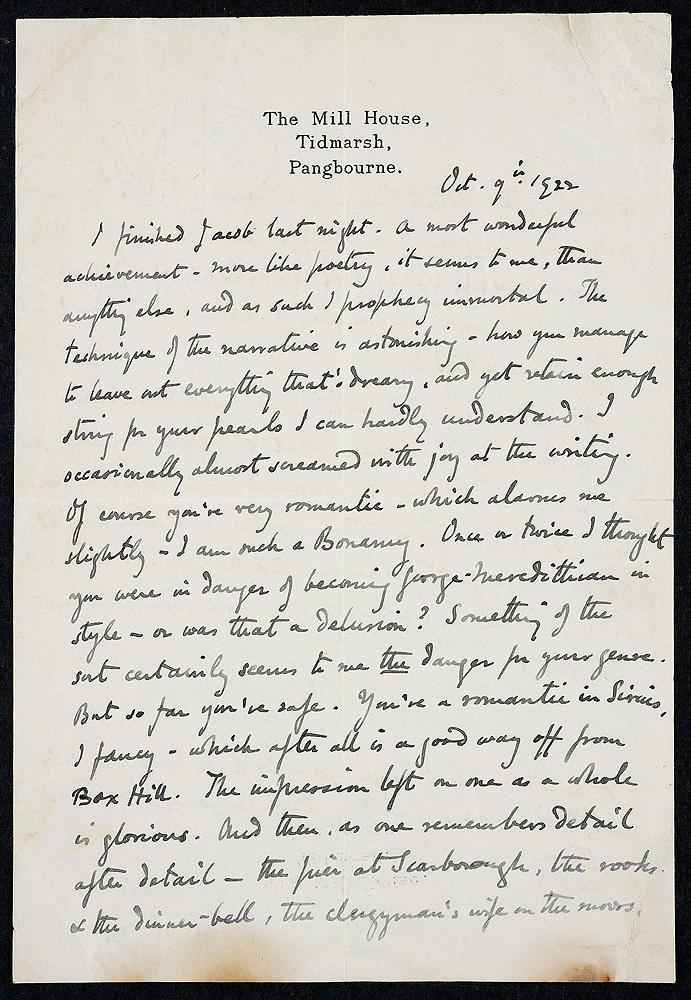 The Mill House,
Tidmarsh,
Pangbourne.
Oct. 9th. 1922
I finished Jacob last night. A most wonderful
achievement – more like poetry, it seems to me, than
anything else, and as such I prophecy immortal. The
technique of the narrative is astonishing – how you manage
to leave out everything that's dreary, and yet retain enough
string for your pearls I can hardly understand. I
occasionally almost screamed with joy at the writing.
Of course you're very romantic – which alarms me
slightly – I am such a Bonamy. Once or twice I thought
you were in danger of becoming George-Meredithian in
style – or was that a delusion? Something of the
sort certainly seems to me the danger for your genre.
But so far you're safe. You're a romantic in Sirius,
I fancy – which after all is a good way off from
Box Hill. The impression left on one as a whole
is glorious. And then, as one remembers detail
after detail – the pier at Scarborough, the rooks
& the dinner-bell, the clergyman's wife on the moors,